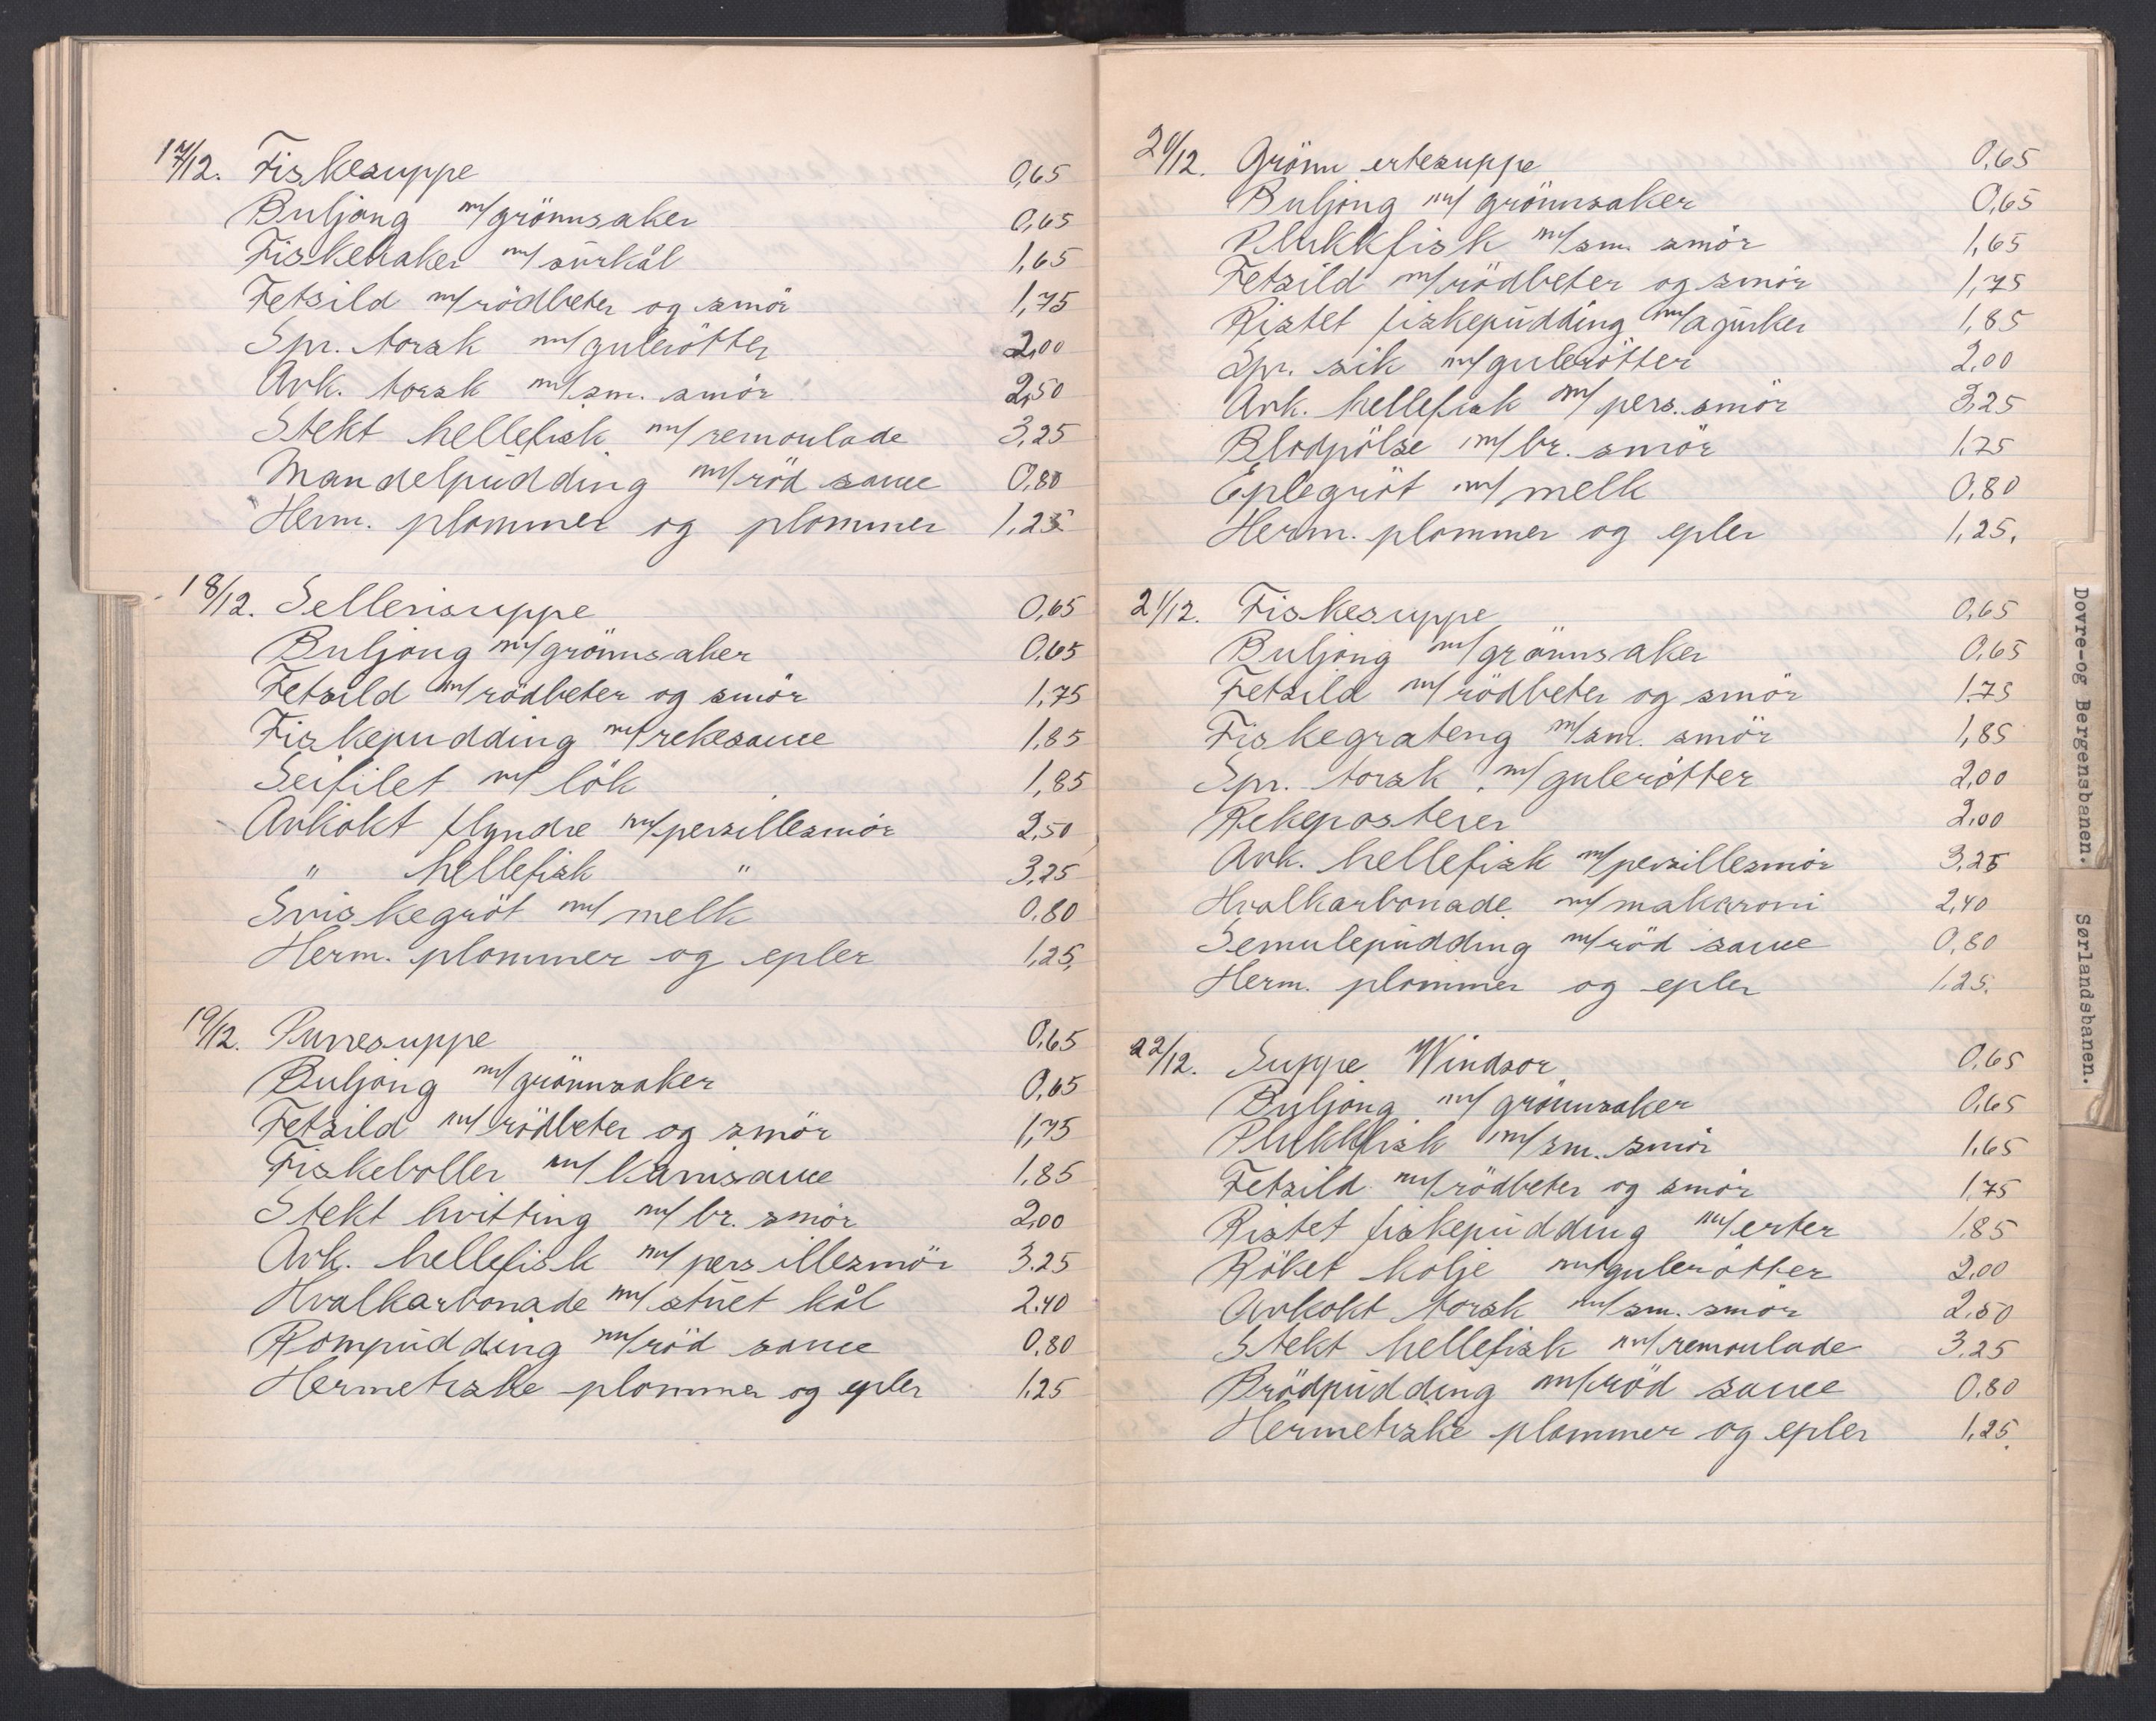 17/12. Fiskesuppe 0,65
Buljong m/grönnsaker 0,65
Fiskekaker m/surkål 1,65
Fetsild m/rödbeter og smör 1,75
Spr. torsk m/gulerötter 2,00
Avk. torsk m/sm. smör 2,50
Stekt hellefisk m/remoulade 3,25
Mandelpudding m/röd saue 0,80
Herm. plommer og plommer 1,25.
18/12. Sellerisuppe 0,65
Buljong m/grönnsaker 0,65
Fetsild m/rödbeter og smör 1,75
Fiskepudding m/rekesaue 1,85
Seifilet m/ lök 1,85
Avkokt flyndre m/persillesmör 2,50
" hellefisk " 3,25
Sviskegröt m/ melk 0,80
Herm. plommer og epler 1,25.
19/12. Purresuppe 0,65
Buljong m/grönnsaker 0,65
Fetsild m/ rödbeter og smör 1,75
Fiskeboller m/ karrisaue 1,85
Stekt hvitting m/ br. smör 2,00
Avk. hellefisk m/ persillesmör 3.25
Hvalkarbonade m/ stuet kål 2.40
Rompudding m/röd saue 0,80
Hermetiske plommer og epler 1,25
20/12. Grönn ertesuppe 0,65
Buljong m/ grönnsaker 0,65
Plukkfisk m/sm. smör 1,65
Fetsild m/rödbeter og smör 1,75
Ristet fiskepudding m/agurker 1,85
Spr. sik m/gulerötter 2,00
Avk. hellefisk m/ pers. smör 3,25
Blodpölse m/br. smör 1.75
Eplegröt m/ melk 0.80
Herm. plommer og epler 1,25.
21/12. Fiskesuppe 0,65
Buljong m/grönnsaker 0,65
Fetsild m/ rödbeter og smör 1.75
Fiskegrateng m/sm. smör 1,85
Spr. torsk m/ gulerötter 2,00
Rekeposteier 2.00
Avk. hellefisk m/persillesmör 3,25
Hvalkarbonade m/makaroni 2,40
Semulepudding m/röd saue 0,80
Herm. plommer og epler 1.25.
22/12. Suppe Windsor 0,65
Buljong m/ grönnsaker 0,65
Plukkfisk m/sm. smör 1.65
Fetsild m/rödbeter og smör 1,75
Ristet fiskepudding m/erter 1.85
Röket kolje m/gulerötter 2,00
Avkokt torsk m/sm. smör 2.50
Stekt hellefisk m/remoulade 3,25
Brödpudding m/röd saue 0.80
Hermetiske plommer og epler 1,25.
Dovre-og Bergensbanen.
Sørlandsbanen.